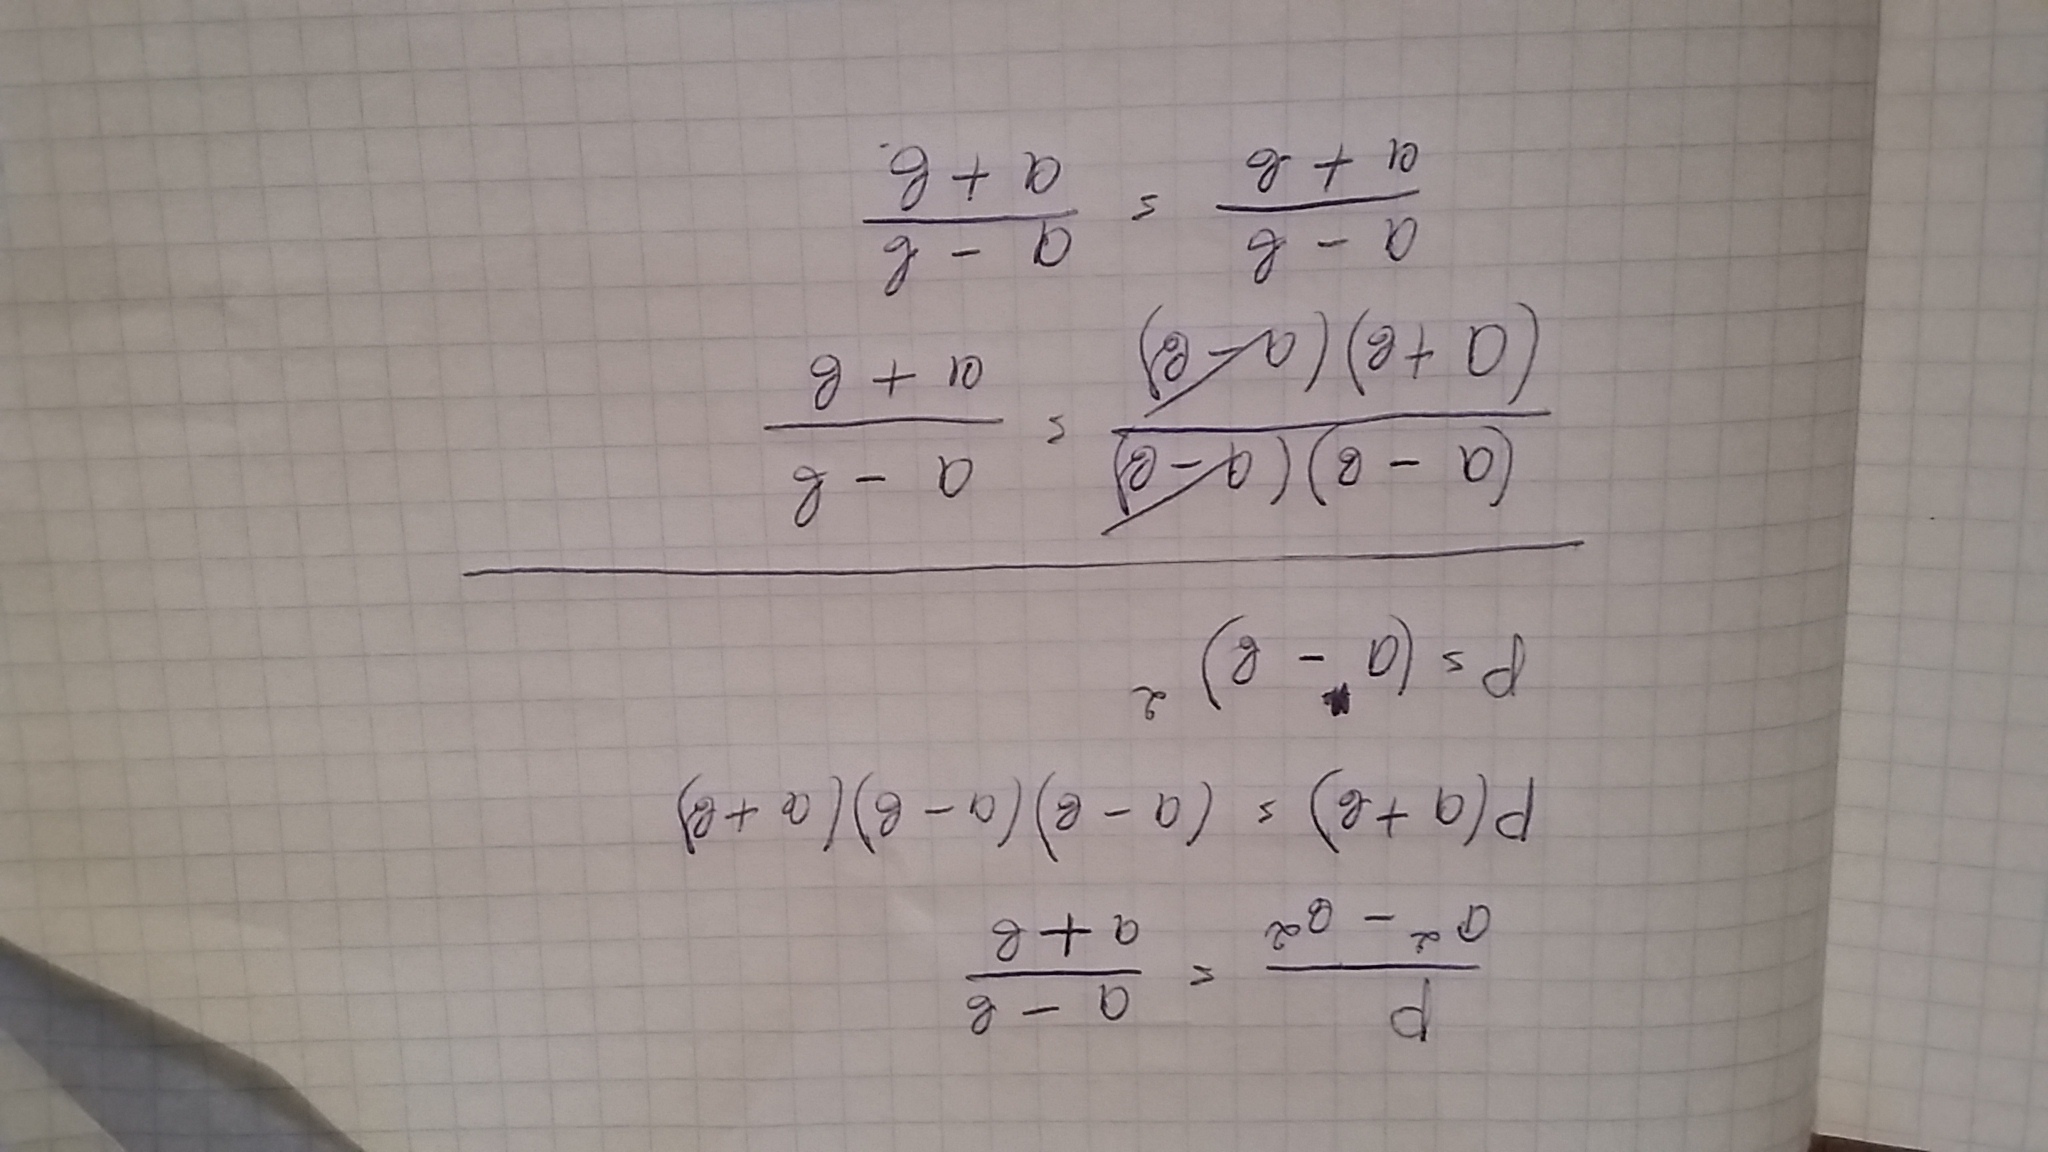 P/(a² - b²) = (a - b)/(a + b)
P(a + b) = (a - b)(a - b)(a + b)
P = (a - b)²
(a - b)(a - b)/(a + b)(a - b) = (a - b)/(a + b)
(a - b)/(a + b) = (a - b)/(a + b).